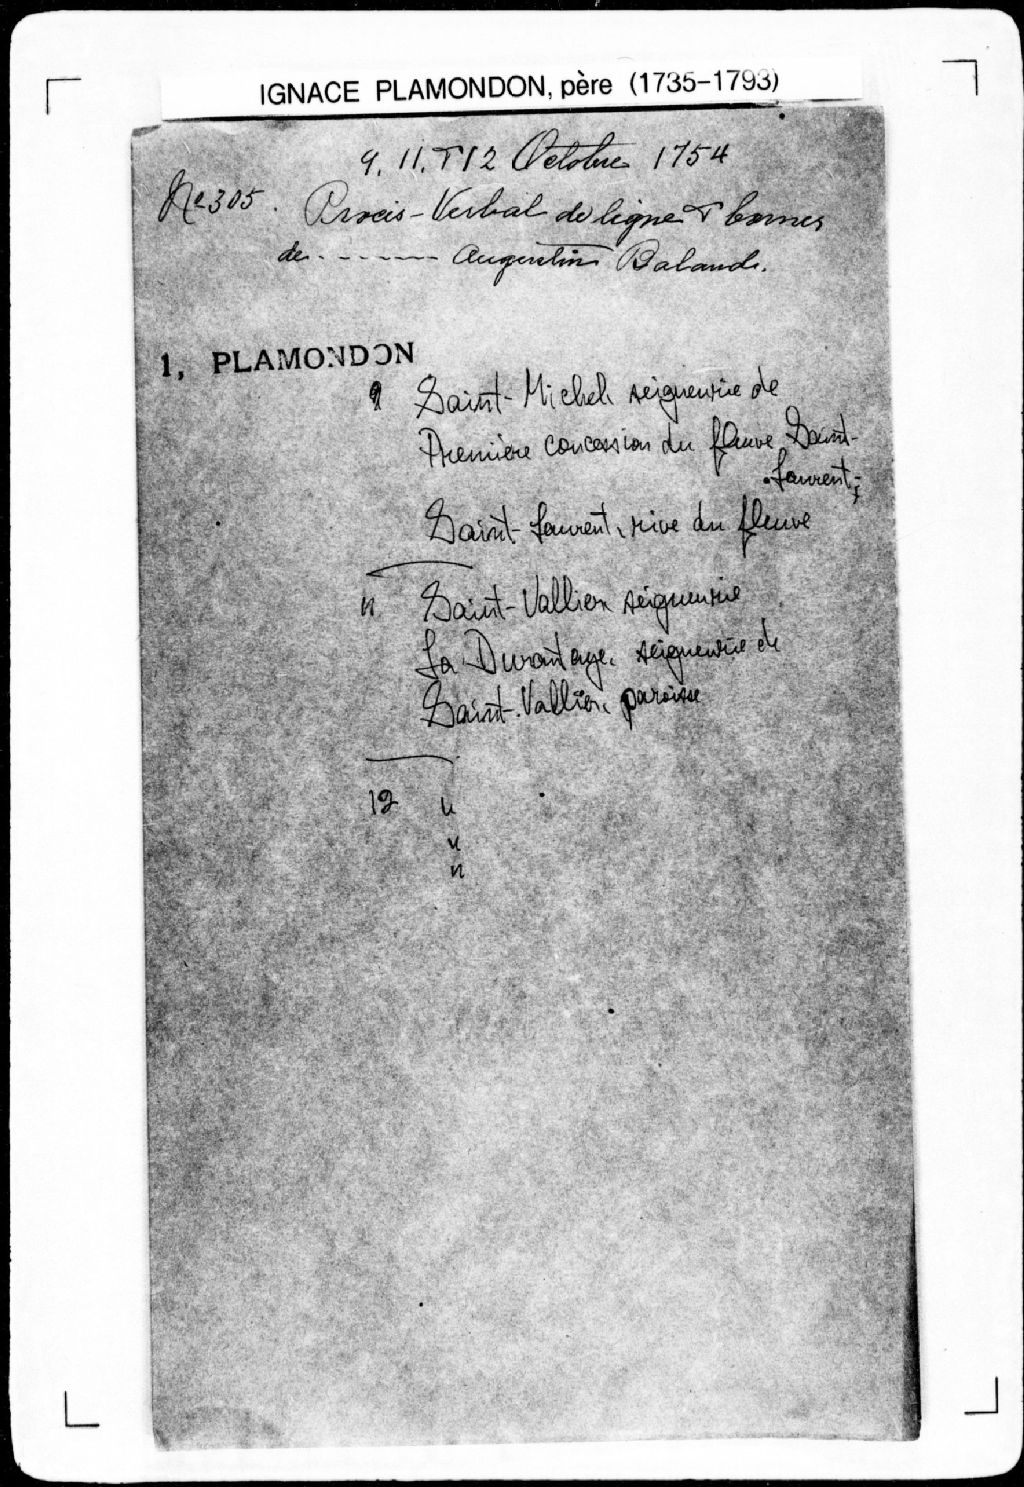 IGNACE PLAMONDON, père (1735-1793)
9, 11, & 12 Octobre 1754
No 305. Procès-Verbal de ligne & bornes
de ------- Augustin Baland.
1, PLAMONDON
9 Saint-Michel, seigneurie de
Première concession du fleuve Saint-
Laurent;
Saint-Laurent, rive du fleuve
11 Saint-Vallier, seigneurie
La Durantaye, seigneurie de
Saint-Vallier, paroisse
12 "
"
"